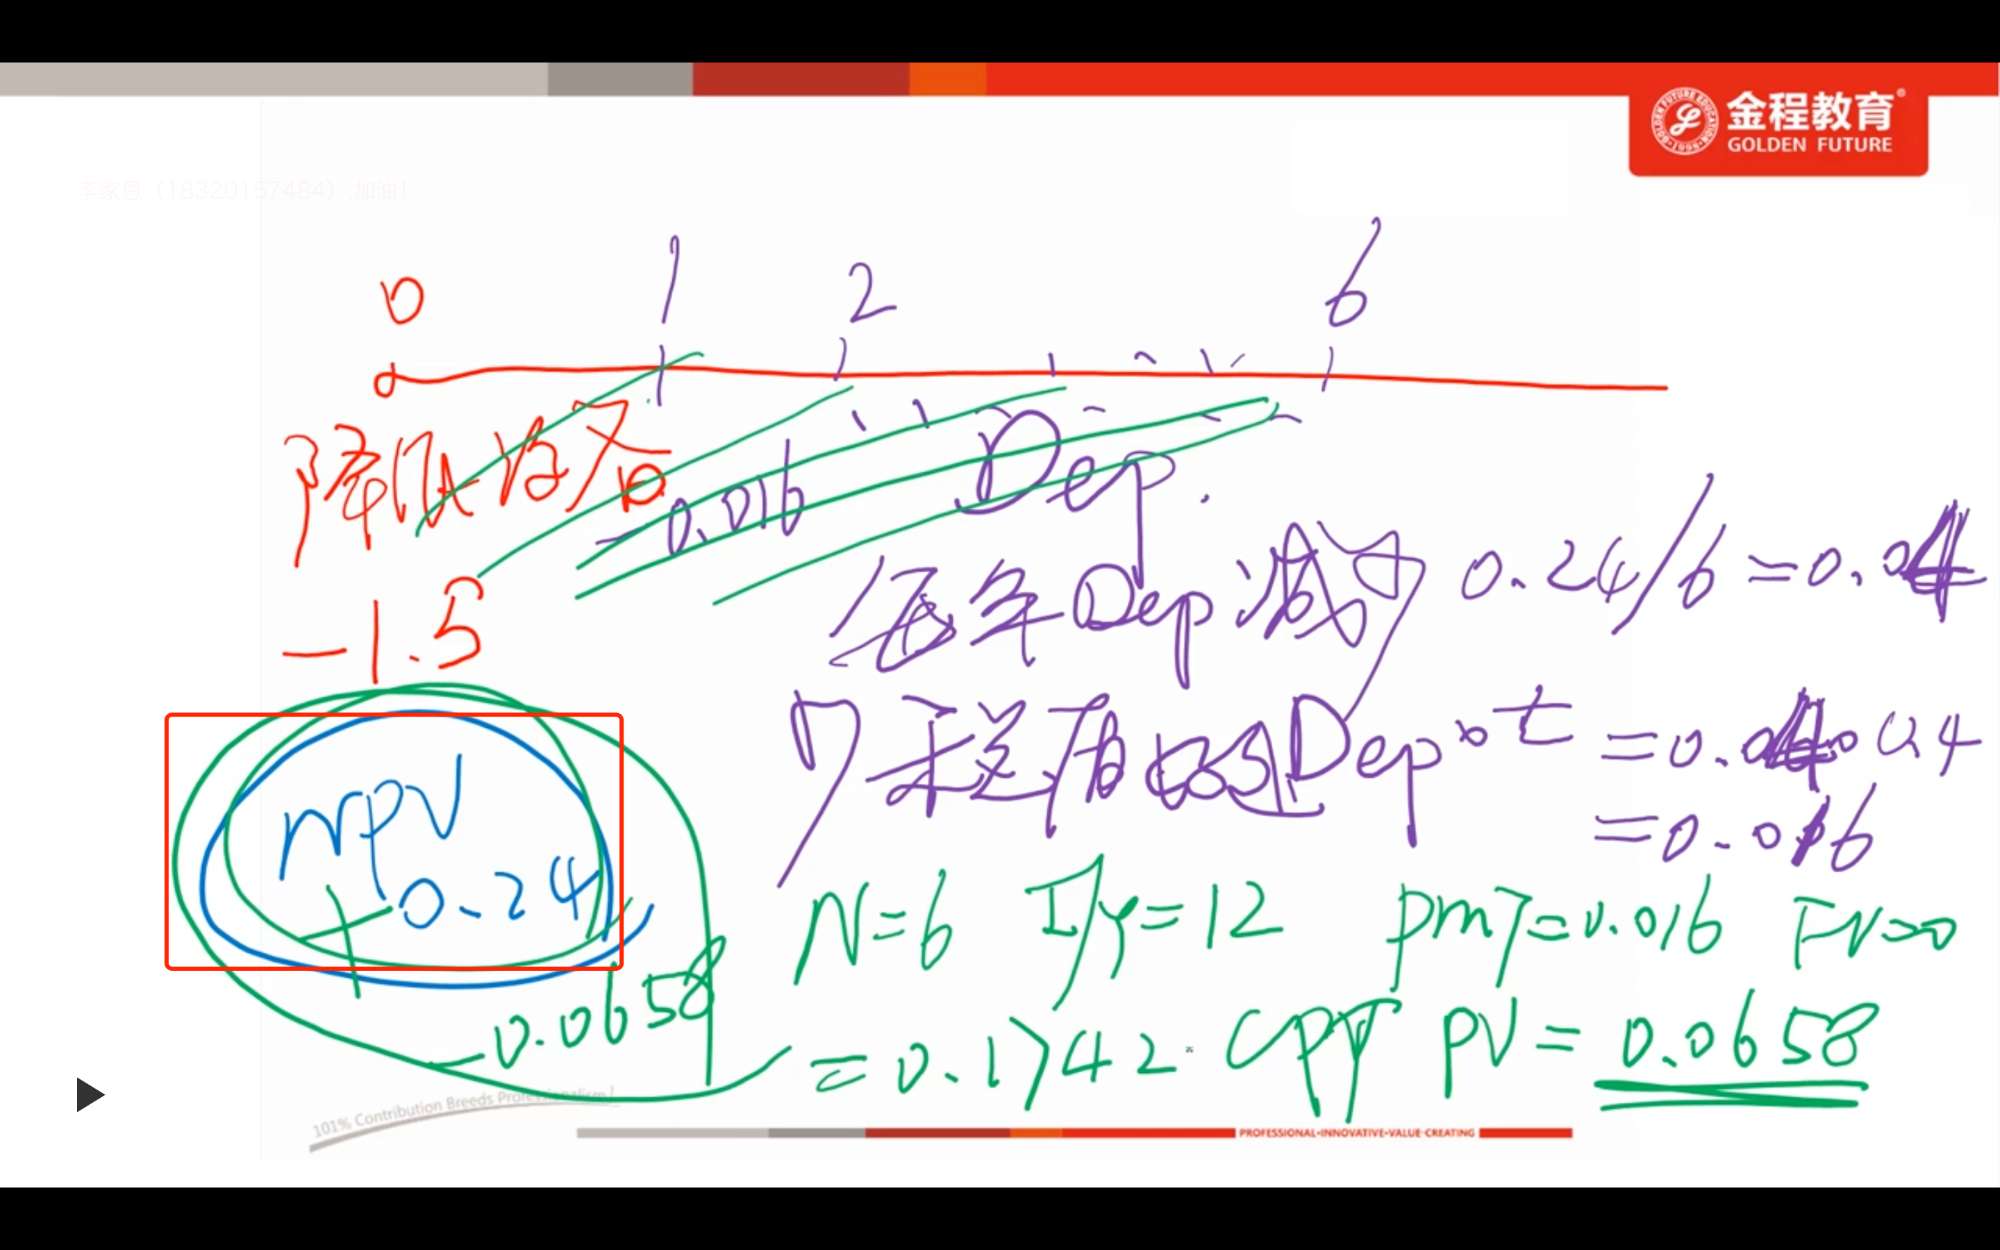 金程教育
GOLDEN FUTURE
0 1 2 6
降低设备
-0.016 Dep.
-1.5
每年Dep减少 0.24/6=0.04
税盾 Dep×t =0.04×0.4
=0.016
NPV
0.24
N=6 I/Y=12 PMT=0.016 FV=0
-0.0658
=0.1742 CPT PV=0.0658
101% Contribution Breeds Professionalism!
PROFESSIONAL·INNOVATIVE·VALUE-CREATING